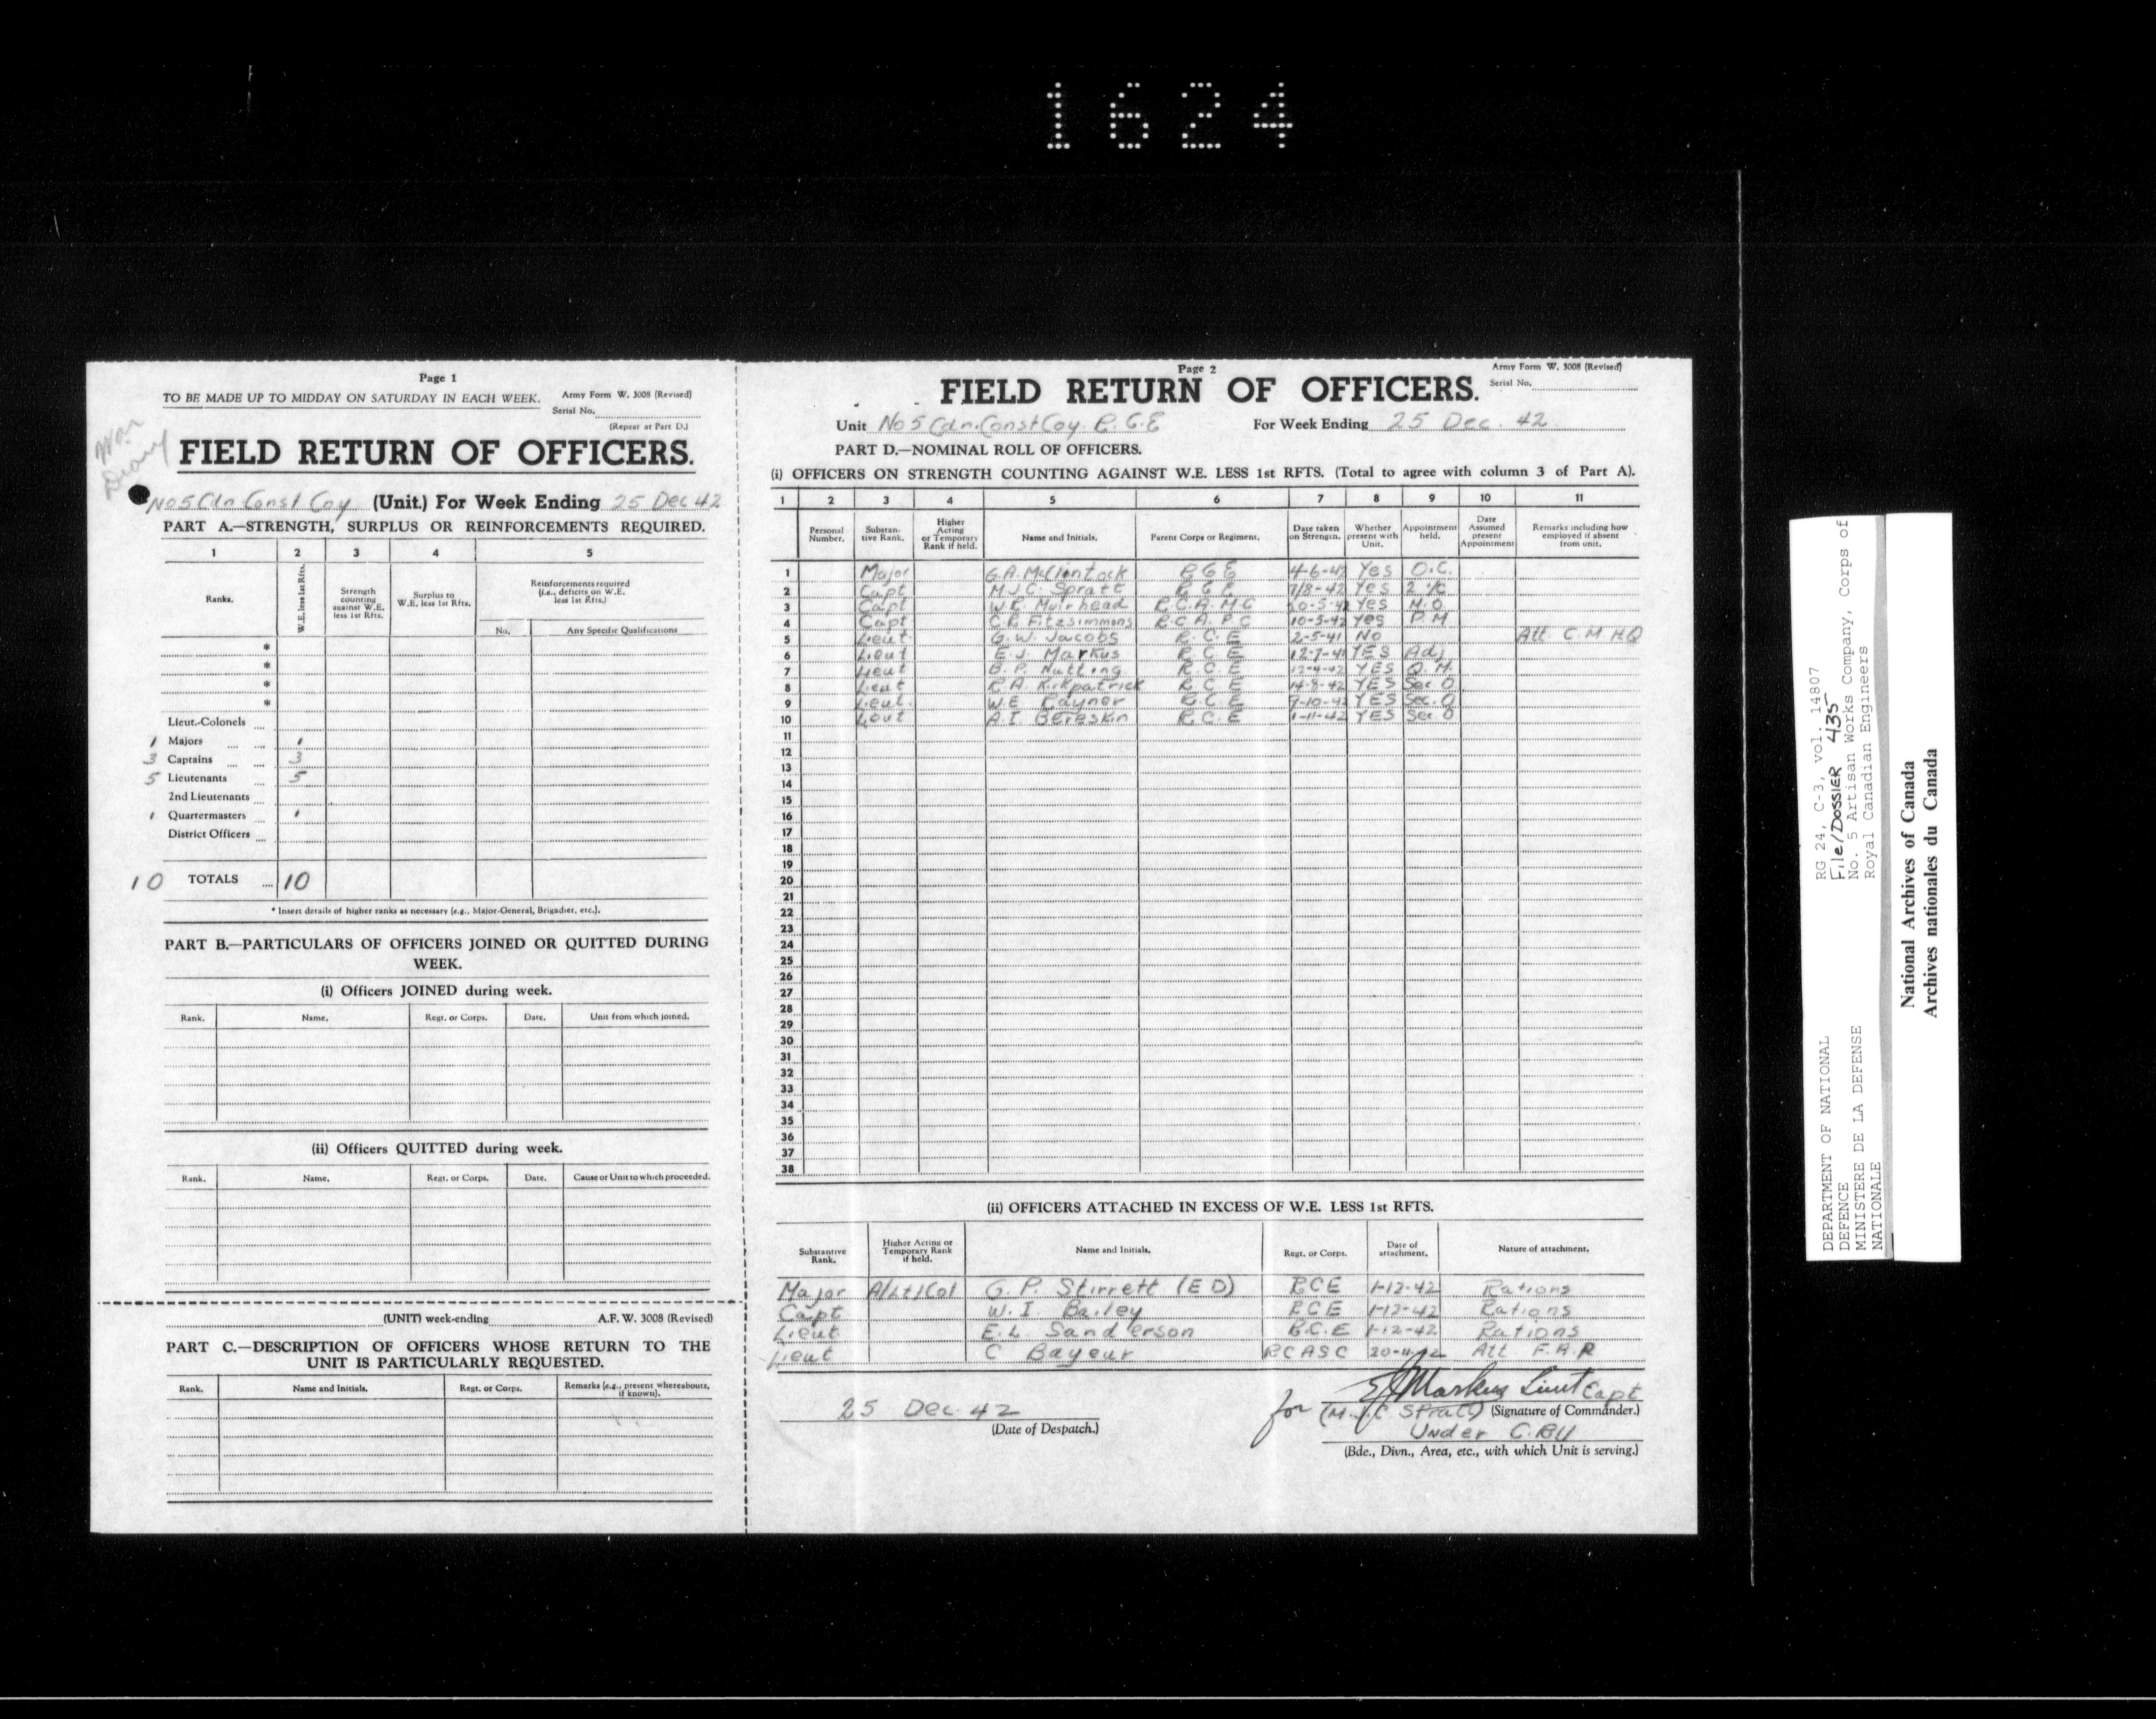 1624
Page 1
TO BE MADE UP TO MIDDAY ON SATURDAY IN EACH WEEK.
Army Form W. 3008 (Revised)
Serial No.
(Repeat at Part D.)
War
Diary
FIELD RETURN OF OFFICERS.
No 5 Cdn Const Coy (Unit.) For Week Ending 25 Dec 42
PART A.—STRENGTH, SURPLUS OR REINFORCEMENTS REQUIRED.
1 2 3 4 5
Ranks.
W.E. less 1st Rfts.
Strength counting against W.E. less 1st Rfts.
Surplus to W.E. less 1st Rfts.
Reinforcements required (i.e., deficits on W.E. less 1st Rfts.)
No. Any Specific Qualifications
*
*
*
*
Lieut.-Colonels
1 Majors 1
3 Captains 3
5 Lieutenants 5
2nd Lieutenants
1 Quartermasters 1
District Officers
10 TOTALS 10
* Insert details of higher ranks as necessary (e.g., Major-General, Brigadier, etc.).
PART B.—PARTICULARS OF OFFICERS JOINED OR QUITTED DURING
WEEK.
(i) Officers JOINED during week.
Rank. Name. Regt. or Corps. Date. Unit from which joined.
(ii) Officers QUITTED during week.
Rank. Name. Regt. or Corps. Date. Cause or Unit to which proceeded.
(UNIT) week-ending A.F. W. 3008 (Revised)
PART C.—DESCRIPTION OF OFFICERS WHOSE RETURN TO THE
UNIT IS PARTICULARLY REQUESTED.
Rank. Name and Initials. Regt. or Corps. Remarks (e.g., present whereabouts, if known).
Page 2
Army Form W. 3008 (Revised)
FIELD RETURN OF OFFICERS.
Serial No.
Unit No 5 Cdn. Const Coy. R.C.E For Week Ending 25 Dec. 42
PART D.—NOMINAL ROLL OF OFFICERS.
(i) OFFICERS ON STRENGTH COUNTING AGAINST W.E. LESS 1st RFTS. (Total to agree with column 3 of Part A).
1 2 3 4 5 6 7 8 9 10 11
Personal Number.
Substantive Rank.
Higher Acting or Temporary Rank if held.
Name and Initials.
Parent Corps or Regiment.
Date taken on Strength.
Whether present with Unit.
Appointment held.
Date Assumed present Appointment
Remarks including how employed if absent from unit.
1 Major G.A. McClintock R C E 4-6-42 Yes O.C.
2 Capt M.J.C. Spratt R C E 7/8-42 Yes 2 i/c
3 Capt W.E. Muirhead R.C.A.M.C Yes M.O.
4 Capt C.R. Fitzsimmons R.C.A.P.C 10-3-42 Yes P M
5 Lieut. G.W. Jacobs R.C.E 2-5-41 No Att C.M.H.Q
6 Lieut E.J. Markus R.C.E 12-7-41 YES Adj
7 Lieut B.P. Nutling R.C.E 12-4-42 YES Q.M.
8 Lieut R.A. Kirkpatrick R.C.E 14-8-42 YES Sec. O
9 Lieut. W.E. Rayner R.C.E 7-10-42 YES Sec. O
10 Lieut A.I. Bereskin R.C.E 1-11-42 YES Sec O
11
12
13
14
15
16
17
18
19
20
21
22
23
24
25
26
27
28
29
30
31
32
33
34
35
36
37
38
(ii) OFFICERS ATTACHED IN EXCESS OF W.E. LESS 1st RFTS.
Substantive Rank.
Higher Acting or Temporary Rank if held.
Name and Initials.
Regt. or Corps.
Date of attachment.
Nature of attachment.
Major A/Lt/Col G. P. Stirrett (E D) RCE 1-12-42 Rations
Capt W. I. Bailey RCE 1-12-42 Rations
Lieut E.L. Sanderson R.C.E 1-12-42 Rations
Lieut C Bayeur RCASC 20-11-42 Att F.A.R
25 Dec. 42
(Date of Despatch.)
EJ Markus Lieut Capt
for (M.J.C Spratt) (Signature of Commander.)
Under C.R.U
(Bde., Divn., Area, etc., with which Unit is serving.)
DEPARTMENT OF NATIONAL
DEFENCE
MINISTERE DE LA DEFENSE
NATIONALE
RG 24, C-3, vol. 14807
File/DOSSIER 435
No. 5 Artisan Works Company, Corps of
Royal Canadian Engineers
National Archives of Canada
Archives nationales du Canada